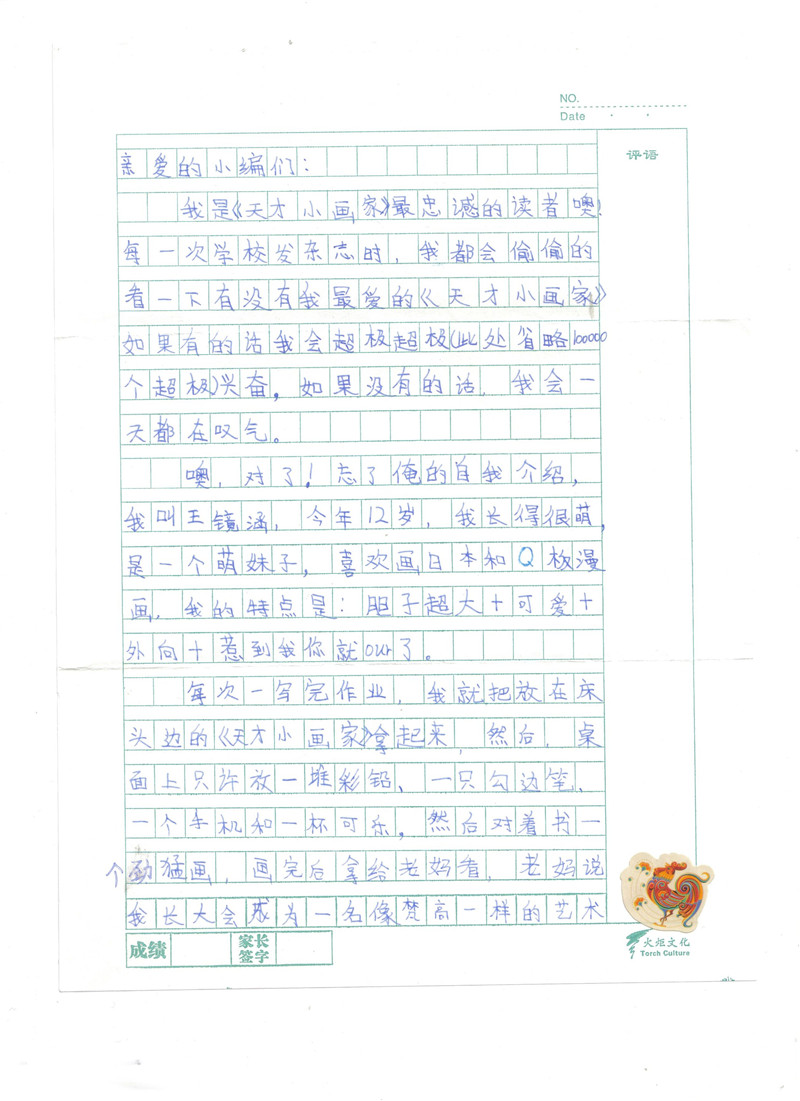 NO.
Date . .
评语
亲爱的小编们：
我是《天才小画家》最忠憾的读者噢！
每一次学校发杂志时，我都会偷偷的
看一下有没有我最爱的《天才小画家》
如果有的话我会超极超极(此处省略100000
个超极)兴奋。如果没有的话，我会一
天都在叹气。
噢，对了！忘了俺的自我介绍，
我叫王镜涵，今年12岁，我长得很萌，
是一个萌妹子，喜欢画日本和Q极漫
画，我的特点是：胆子超大+可爱+
外向+惹到我你就our了。
每次一写完作业，我就把放在床
头边的《天才小画家》拿起来，然后，桌
面上只许放一堆彩铅、一只勾边笔、
一个手机和一杯可乐，然后对着书一
个劲猛画，画完后拿给老妈看，老妈说
我长大会成为一名像梵高一样的艺术
成绩 家长签字
火炬文化
Torch Culture